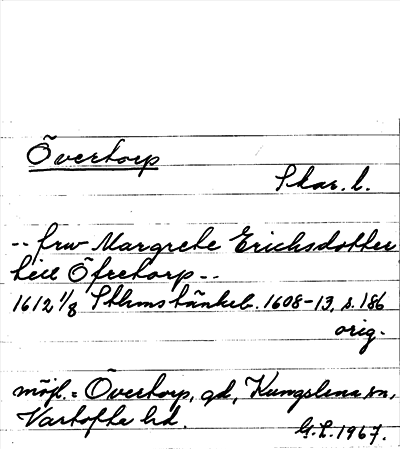 Övertorp
Skar. l.
-- frw Margrete Erichsdotter
till Öfretorp --
1612 1/8 Sthms tänkeb. 1608-13, s. 186
orig.
möjl. = Övertorp, gd, Kungslena sn,
Vartofta hd.
G.L. 1967.